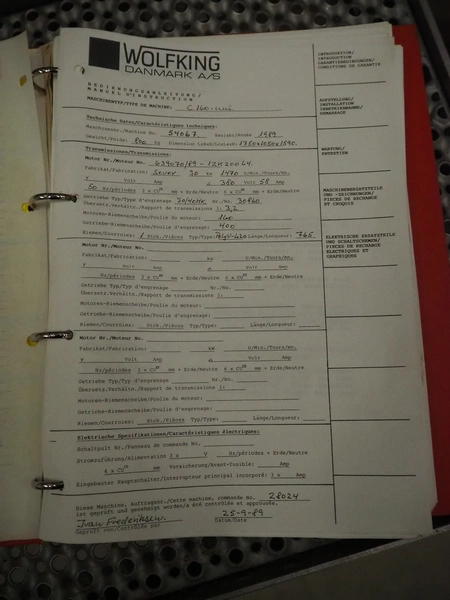 WOLFKING
DANMARK A/S
BEDIENUNGSANLEITUNG/
MANUEL D'INSTRUCTION
MASCHINENTYP/TYPE DE MACHINE: C 160-
Technische Daten/Caractéristiques techniques:
Maschinennr./Machine No. 54067 Baujahr/Année 1989
Gewicht/Poids: 800 kg Dimension LxBxH/LxBxH:
Transmissionen/Transmissions:
Motor Nr./Moteur No.
Fabrikat/Fabrication: 30 kw 1470 U/Min./Tours/Mn.
Y Volt Amp Δ 380 Volt 58 Amp
50 Hz/périodes 3 x CV mm + Erde/Neutre 6 x CV mm + Erde/Neutre
Getriebe Typ/Type d'engrenage Nr./No.
Übersetz.Verhältn./Rapport de transmissions 1: 3,2
Motoren-Riemenscheibe/Poulie du moteur: 160
Getriebe-Riemenscheibe/Poulie d'engrenage: 400
Riemen/Courroies: Stck./Pièces Typ/Type: Länge/Longueur: 765
Motor Nr./Moteur No.
Fabrikat/Fabrication: kw U/Min./Tours/Mn.
Y Volt Amp Δ Volt Amp
Hz/périodes 3 x CV mm + Erde/Neutre 6 x CV mm + Erde/Neutre
Getriebe Typ/Typ d'engrenage Nr./No.
Übersetz.Verhältn./Rapport de transmissions 1:
Motoren-Riemenscheibe/Poulie du moteur:
Getriebe-Riemenscheibe/Poulie d'engrenage:
Riemen/Courroies: Stck./Pièces Typ/Type: Länge/Longueur:
Motor Nr./Moteur No.
Fabrikat/Fabrication: kw U/Min./Tours/Mn.
Y Volt Amp Δ Volt Amp
Hz/périodes 3 x CV mm + Erde/Neutre 6 x CV mm + Erde/Neutre
Getriebe Typ/Typ d'engrenage Nr./No.
Übersetz.Verhältn./Rapport de transmissions 1:
Motoren-Riemenscheibe/Poulie du moteur:
Getriebe-Riemenscheibe/Poulie d'engrenage:
Riemen/Courroies: Stck./Pièces Typ/Type: Länge/Longueur:
Elektrische Spezifikationen/Caractéristiques électriques:
Schaltpult Nr./Panneau de commande No.
Stromzuführung/Alimentation 3 x V Hz/périodes + Erde/Neutre
4 x CV mm Vorsicherung/Avant-fusible: Amp
Eingebauter Hauptschalter/Interrupteur principal incorporé: 3 x Amp
Diese Maschine, Auftragsnr./Cette machine, commande No. 28024
ist geprüft und genehmigt worden/a été contrôlée et approuvée.
Ivan Frederiksen 25-9-89
Geprüft von/Contrôlée par Datum/Date
INTRODUKTION/
INTRODUCTION
GARANTIEBEDINGUNGEN/
CONDITIONS DE GARANTIE
AUFSTELLUNG/
INSTALLATION
INBETRIEBNAHME/
DEMARRAGE
WARTUNG/
ENTRETIEN
MASCHINENERSATZTEILE
UND -ZEICHNUNGEN/
PIECES DE RECHANGE
ET CROQUIS
ELEKTRISCHE ERSATZTEILE
UND SCHALTSCHEMEN/
PIECES DE RECHANGE
ELECTRIQUES ET
GRAPHIQUES